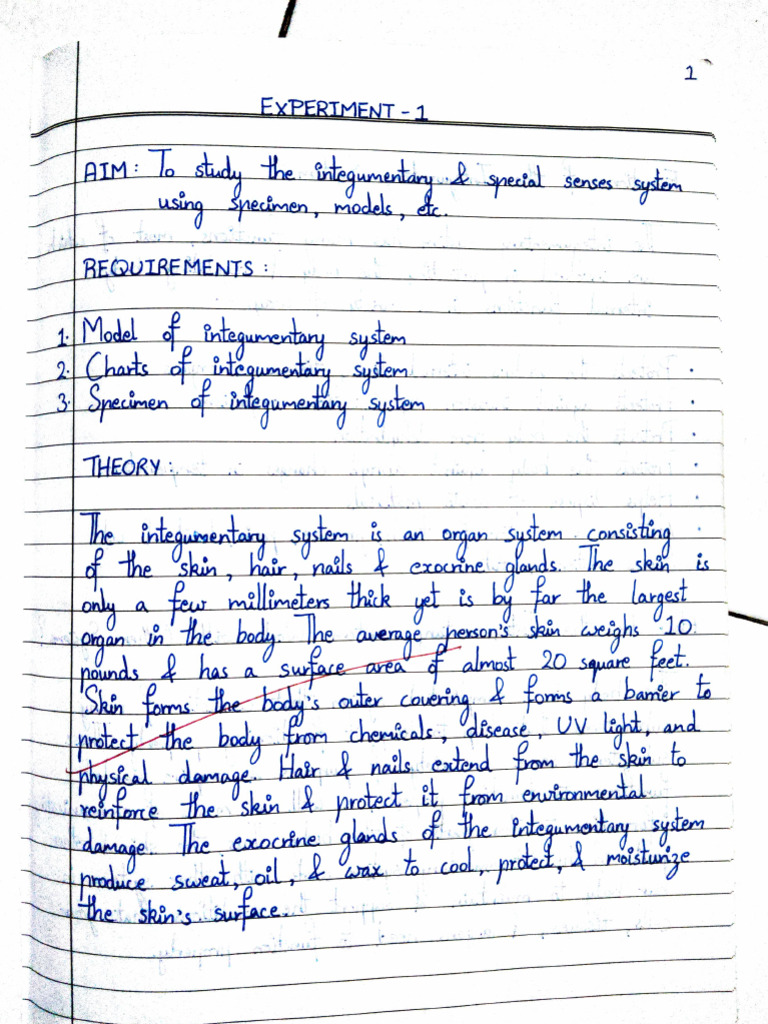 1
EXPERIMENT - 1
AIM: To study the integumentary & special senses system
using specimen, models, etc.
REQUIREMENTS:
1. Model of integumentary system
2. Charts of integumentary system
3. Specimen of integumentary system
THEORY:
The integumentary system is an organ system consisting
of the skin, hair, nails & exocrine glands. The skin is
only a few millimeters thick yet is by far the largest
organ in the body. The average person's skin weighs 10
pounds & has a surface area of almost 20 square feet.
Skin forms the body's outer covering & forms a barrier to
protect the body from chemicals, disease, UV light, and
physical damage. Hair & nails extend from the skin to
reinforce the skin & protect it from environmental
damage. The exocrine glands of the integumentary system
produce sweat, oil, & wax to cool, protect, & moisturize
the skin's surface.